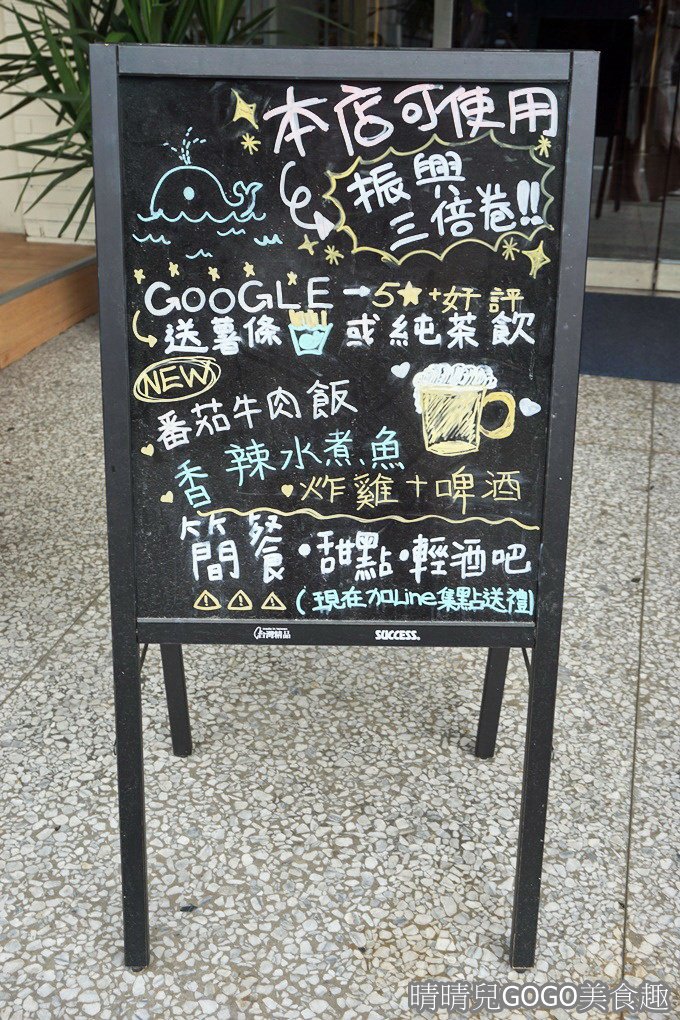 本店可使用
振興
三倍卷!!
GOOGLE→5★+好評
送薯條 或純茶飲
NEW
番茄牛肉飯
香辣水煮魚
炸雞+啤酒
簡餐·甜點·輕酒吧
(現在加Line集點送禮)
台灣精品
SUCCESS
晴晴兒GOGO美食趣